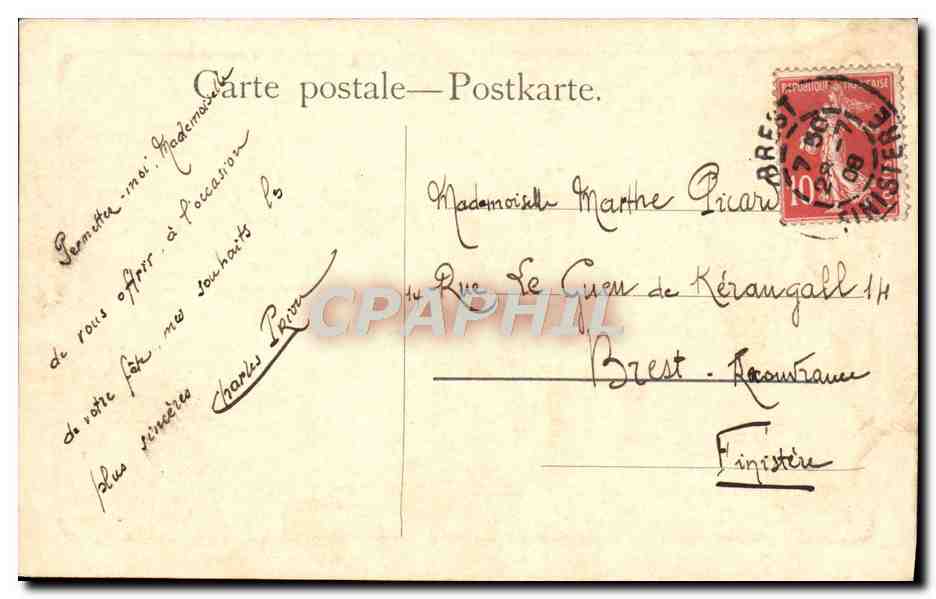 Carte postale—Postkarte.
Permettez-moi Mademoiselle
de vous offrir à l'occasion
de votre fête mes souhaits les
plus sincères
Charles
REPUBLIQUE FRANÇAISE
10
BREST
7 50
28 - 7
08
FINISTERE
Mademoiselle Marthe Picard
14 Rue Le Guen de Kérangall 14
Brest - Recouvrance
Finistère
CPAPHIL